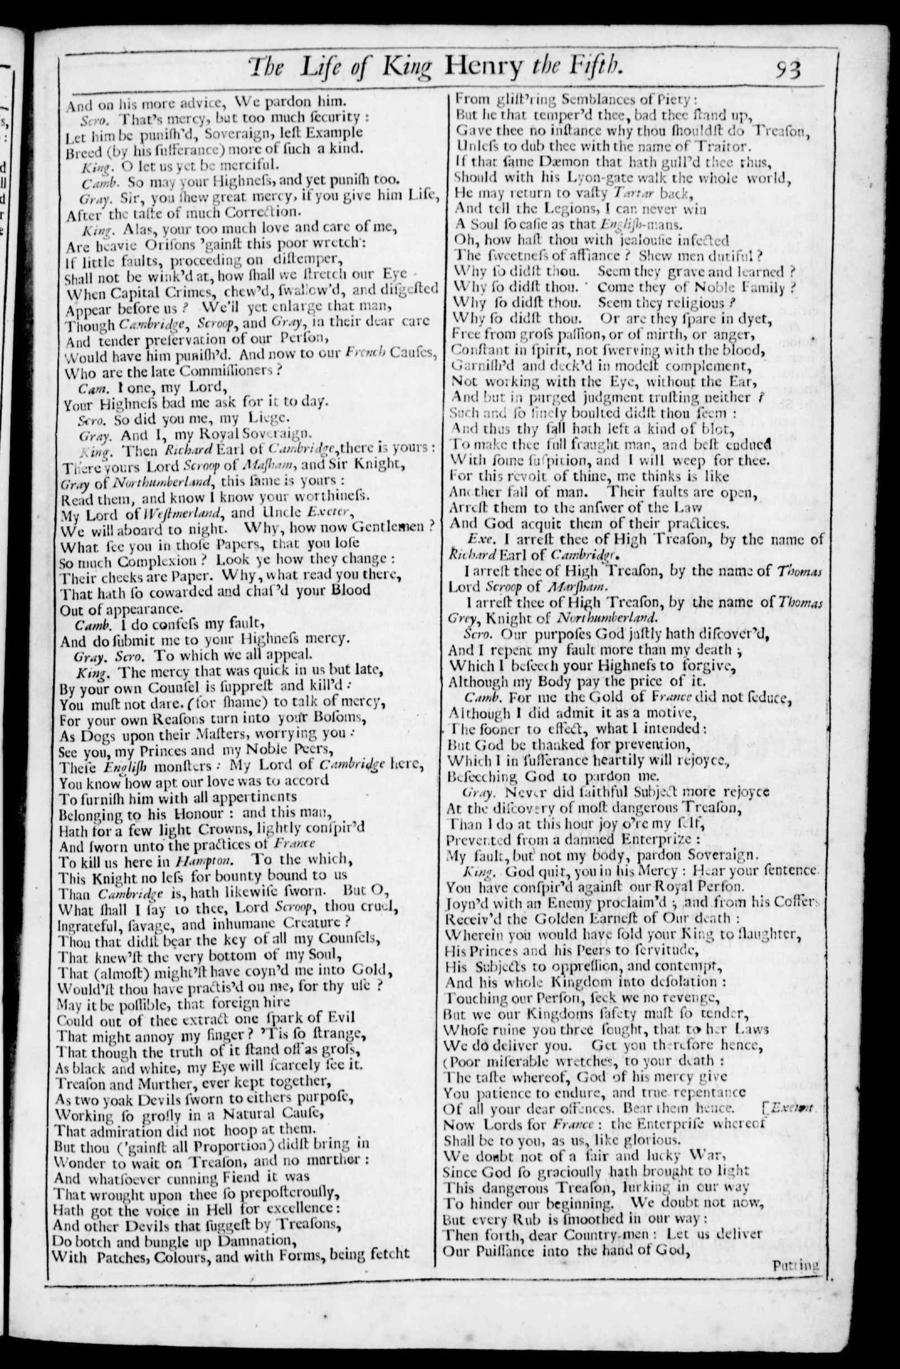 The Life of King Henry the Fifth. 93
And on his more advice, We pardon him.
Scro. That's mercy, but too much ſecurity :
Let him be puniſh'd, Soveraign, leſt Example
Breed (by his ſufferance) more of ſuch a kind.
King. O let us yet be merciful.
Camb. So may your Highneſs, and yet puniſh too.
Gray. Sir, you ſhew great mercy, if you give him Life,
After the taſte of much Correction.
King. Alas, your too much love and care of me,
Are heavie Oriſons 'gainſt this poor wretch :
If little faults, proceeding on diſtemper,
Shall not be wink'd at, how ſhall we ſtretch our Eye
When Capital Crimes, chew'd, ſwallow'd, and diſgeſted
Appear before us ? We'll yet enlarge that man,
Though Cambridge, Scroop, and Gray, in their dear care
And tender preſervation of our Perſon,
Would have him puniſh'd. And now to our French Cauſes,
Who are the late Commiſſioners ?
Cam. I one, my Lord,
Your Highneſs bad me ask for it to day.
Scro. So did you me, my Liege.
Gray. And I, my Royal Soveraign.
King. Then Richard Earl of Cambridge, there is yours :
There yours Lord Scroop of Maſham, and Sir Knight,
Gray of Northumberland, this ſame is yours :
Read them, and know I know your worthineſs.
My Lord of Weſtmerland, and Uncle Exeter,
We will aboard to night. Why, how now Gentlemen ?
What ſee you in thoſe Papers, that you loſe
So much Complexion ? Look ye how they change :
Their cheeks are Paper. Why, what read you there,
That hath ſo cowarded and chaſ'd your Blood
Out of appearance.
Camb. I do confeſs my fault,
And do ſubmit me to your Highneſs mercy.
Gray. Scro. To which we all appeal.
King. The mercy that was quick in us but late,
By your own Counſel is ſuppreſt and kill'd :
You muſt not dare. (for ſhame) to talk of mercy,
For your own Reaſons turn into your Boſoms,
As Dogs upon their Maſters, worrying you :
See you, my Princes and my Noble Peers,
Theſe Engliſh monſters : My Lord of Cambridge here,
You know how apt our love was to accord
To furniſh him with all appertinents
Belonging to his Honour : and this man,
Hath for a few light Crowns, lightly conſpir'd
And ſworn unto the practices of France
To kill us here in Hampton. To the which,
This Knight no leſs for bounty bound to us
Than Cambridge is, hath likewiſe ſworn. But O,
What ſhall I ſay to thee, Lord Scroop, thou cruel,
Ingrateful, ſavage, and inhumane Creature ?
Thou that didſt bear the key of all my Counſels,
That knew'ſt the very bottom of my Soul,
That (almoſt) might'ſt have coyn'd me into Gold,
Would'ſt thou have practis'd on me, for thy uſe ?
May it be poſſible, that foreign hire
Could out of thee extract one ſpark of Evil
That might annoy my finger ? 'Tis ſo ſtrange,
That though the truth of it ſtand off as groſs,
As black and white, my Eye will ſcarcely ſee it.
Treaſon and Murther, ever kept together,
As two yoak Devils ſworn to eithers purpoſe,
Working ſo groſly in a Natural Cauſe,
That admiration did not hoop at them.
But thou ('gainſt all Proportion) didſt bring in
Wonder to wait on Treaſon, and no murther :
And whatſoever cunning Fiend it was
That wrought upon thee ſo prepoſterouſly,
Hath got the voice in Hell for excellence :
And other Devils that ſuggeſt by Treaſons,
Do botch and bungle up Damnation,
With Patches, Colours, and with Forms, being fetcht
From gliſt'ring Semblances of Piety :
But he that temper'd thee, bad thee ſtand up,
Gave thee no inſtance why thou ſhouldſt do Treaſon,
Unleſs to dub thee with the name of Traitor.
If that ſame Dæmon that hath gull'd thee thus,
Should with his Lyon-gate walk the whole world,
He may return to vaſty Tartar back,
And tell the Legions, I can never win
A Soul ſo eaſie as that Engliſh-mans.
Oh, how haſt thou with jealouſie infected
The ſweetneſs of affiance ? Shew men dutiful ?
Why ſo didſt thou. Seem they grave and learned ?
Why ſo didſt thou. Come they of Noble Family ?
Why ſo didſt thou. Seem they religious ?
Why ſo didſt thou. Or are they ſpare in dyet,
Free from groſs paſſion, or of mirth, or anger,
Conſtant in ſpirit, not ſwerving with the blood,
Garniſh'd and deck'd in modeſt complement,
Not working with the Eye, without the Ear,
And but in purged judgment truſting neither ?
Such and ſo finely boulted didſt thou ſeem :
And thus thy fall hath left a kind of blot,
To make thee full fraught man, and beſt endued
With ſome ſuſpition, and I will weep for thee.
For this revolt of thine, me thinks is like
Another fall of man. Their faults are open,
Arreſt them to the anſwer of the Law
And God acquit them of their practices.
Exe. I arreſt thee of High Treaſon, by the name of
Richard Earl of Cambridge.
I arreſt thee of High Treaſon, by the name of Thomas
Lord Scroop of Marſham.
I arreſt thee of High Treaſon, by the name of Thomas
Grey, Knight of Northumberland.
Scro. Our purpoſes God juſtly hath diſcover'd,
And I repent my fault more than my death ;
Which I beſeech your Highneſs to forgive,
Although my Body pay the price of it.
Camb. For me the Gold of France did not ſeduce,
Although I did admit it as a motive,
The ſooner to effect, what I intended :
But God be thanked for prevention,
Which I in ſufferance heartily will rejoyce,
Beſeeching God to pardon me.
Gray. Never did faithful Subject more rejoyce
At the diſcovery of moſt dangerous Treaſon,
Than I do at this hour joy o're my ſelf,
Prevented from a damned Enterprize :
My fault, but not my body, pardon Soveraign.
King. God quit, you in his Mercy : Hear your ſentence
You have conſpir'd againſt our Royal Perſon.
Joyn'd with an Enemy proclaim'd ; and from his Coffers
Receiv'd the Golden Earneſt of Our death :
Wherein you would have ſold your King to ſlaughter,
His Princes and his Peers to ſervitude,
His Subjects to oppreſſion, and contempt,
And his whole Kingdom into deſolation :
Touching our Perſon, ſeek we no revenge,
But we our Kingdoms ſafety muſt ſo tender,
Whoſe ruine you three ſought, that to her Laws
We do deliver you. Get you therefore hence,
(Poor miſerable wretches, to your death :
The taſte whereof, God of his mercy give
You patience to endure, and true repentance
Of all your dear offences. Bear them hence. [Exeunt.
Now Lords for France : the Enterpriſe whereof
Shall be to you, as us, like glorious.
We doubt not of a fair and lucky War,
Since God ſo graciouſly hath brought to light
This dangerous Treaſon, lurking in our way
To hinder our beginning. We doubt not now,
But every Rub is ſmoothed in our way :
Then forth, dear Country-men : Let us deliver
Our Puiſſance into the hand of God,
Putting